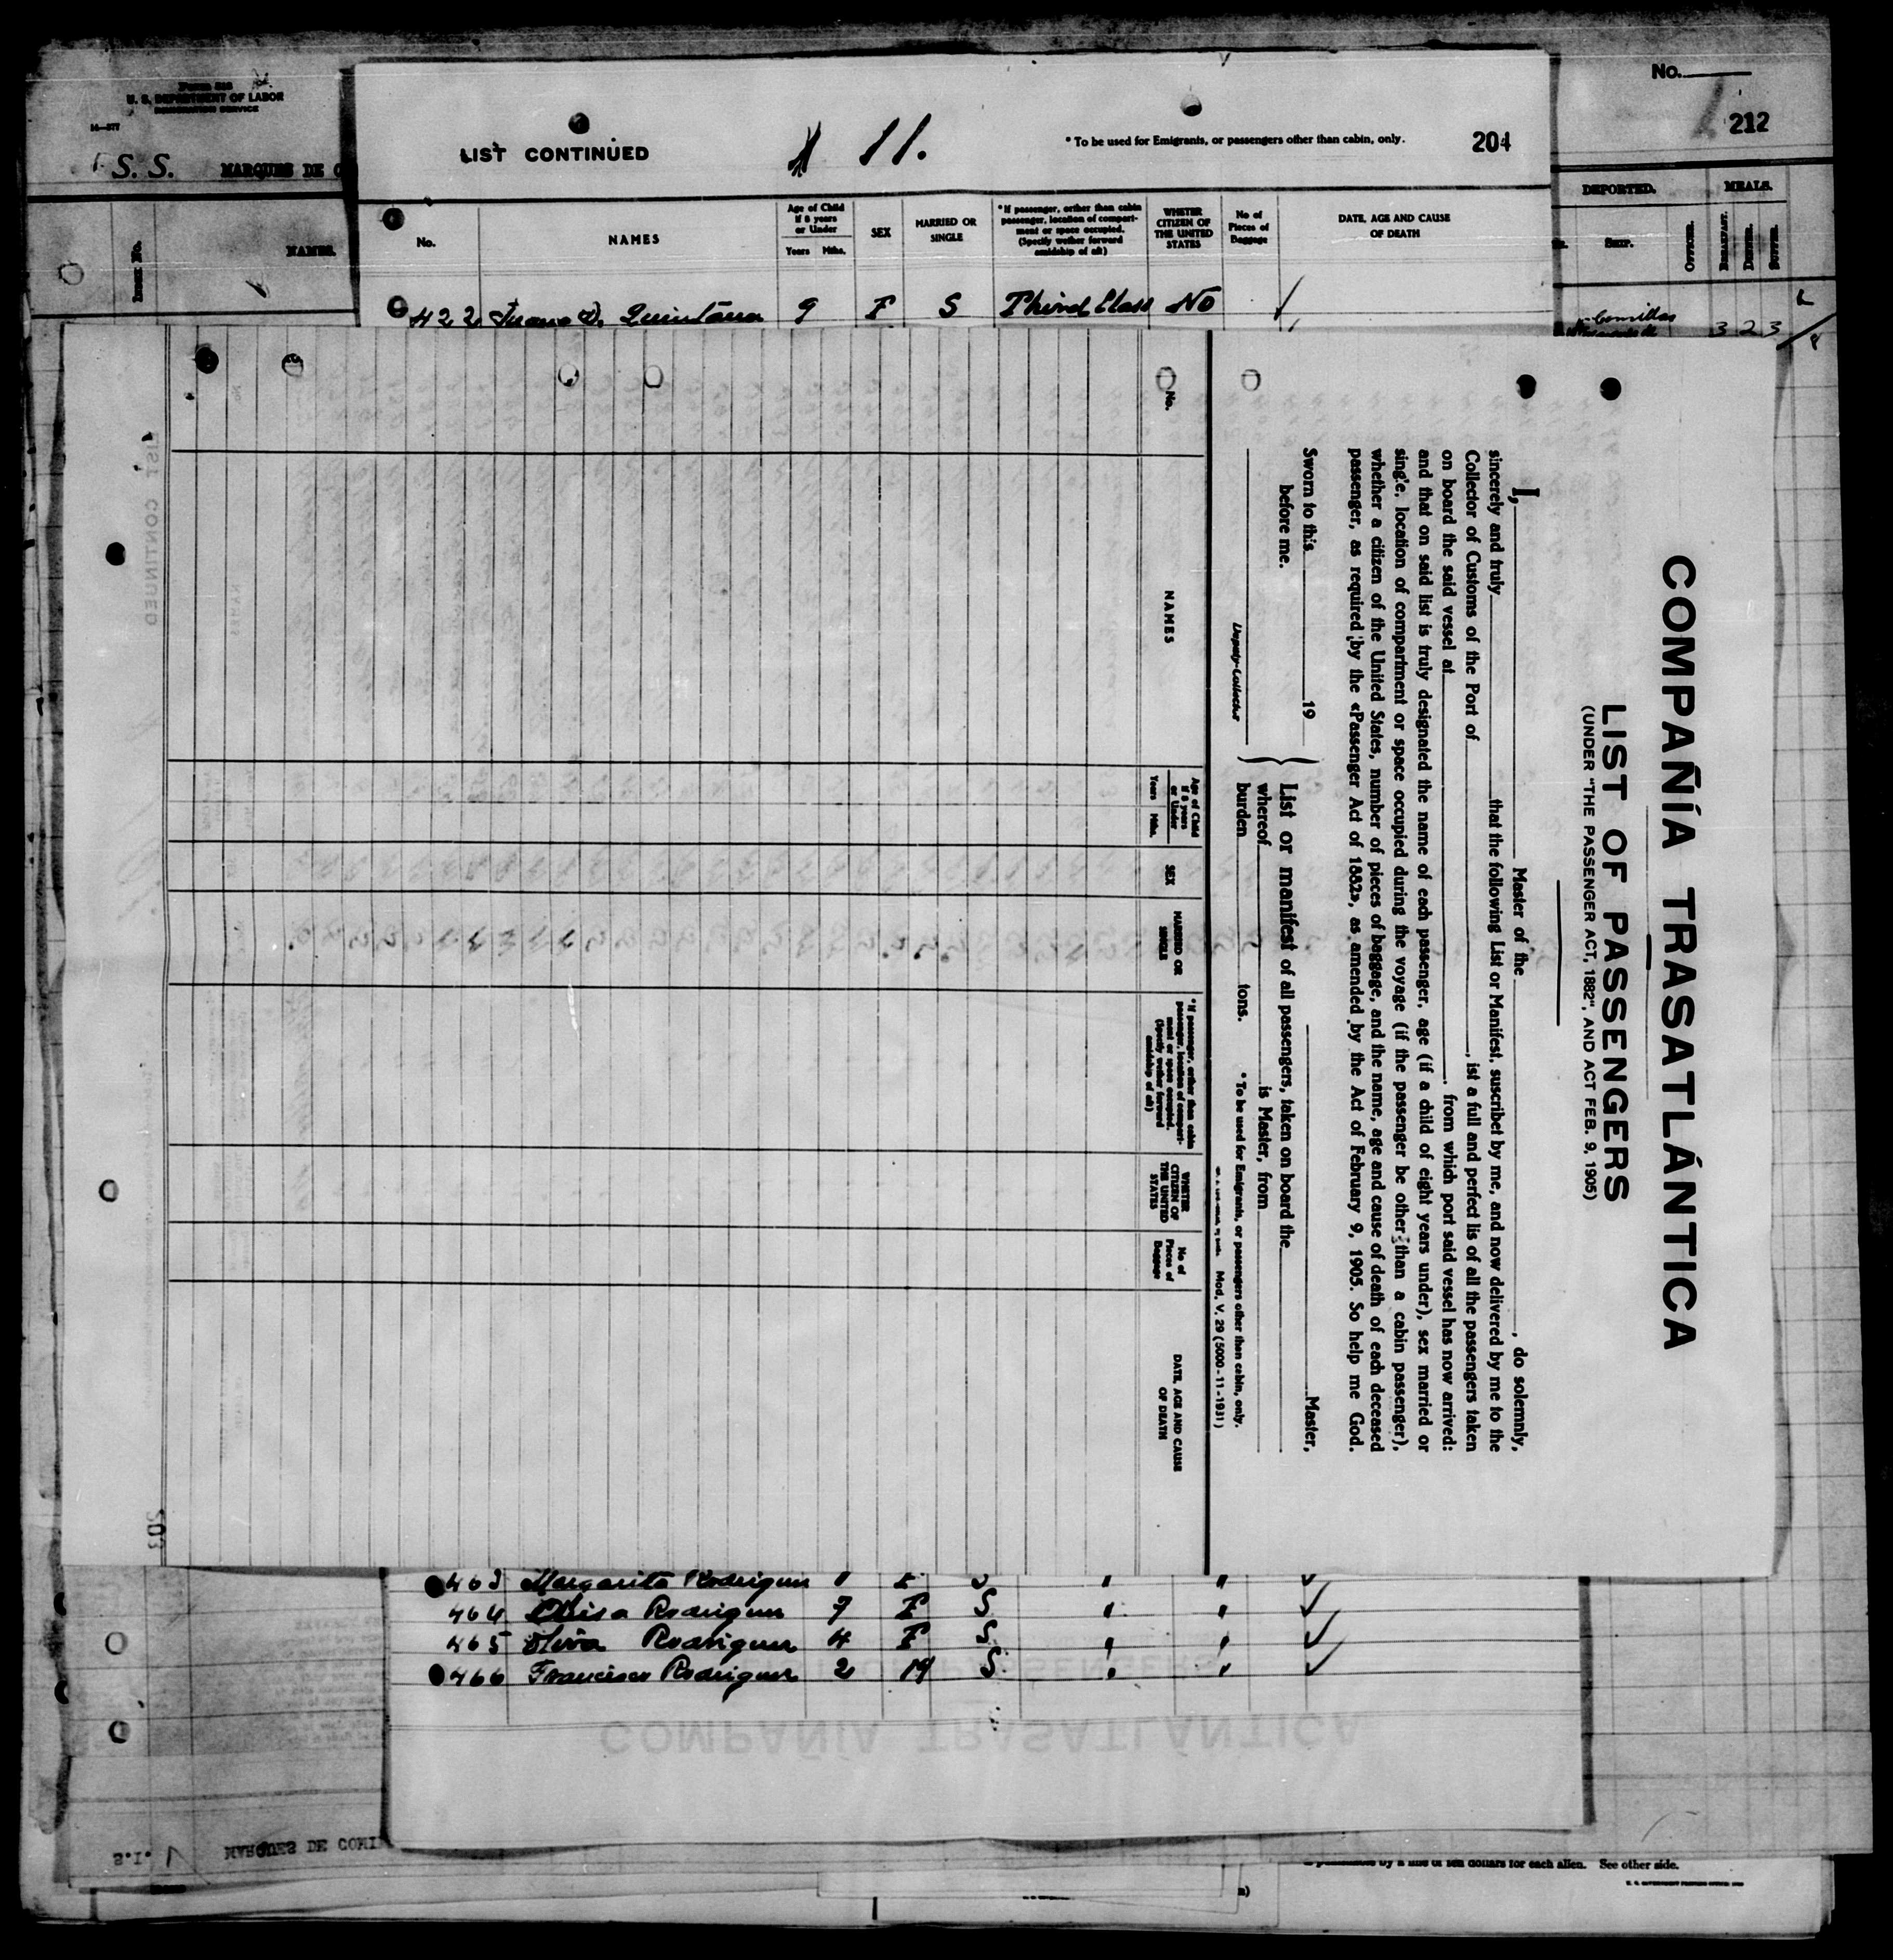 Form 518
U. S. DEPARTMENT OF LABOR
IMMIGRATION SERVICE
14—577
S. S. MARQUES DE C
Index No.
NAMES.
No.
212
DEPORTED.
MEALS.
SHIP.
OFFICER.
BREAKFAST.
DINNER.
SUPPER.
Comillas
3 2 3
LIST CONTINUED
11.
* To be used for Emigrants, or passengers other than cabin, only.
204
No.
NAMES
Age of Child if 8 years or Under
Years Mths.
SEX
MARRIED OR SINGLE
* If passenger, orther than cabin passenger, location of compartment or space occupied. (Specify wether forward amidship of aft)
WHETER CITIZEN OF THE UNITED STATES
No of Pieces of Baggage
DATE, AGE AND CAUSE OF DEATH
422 Juana D. Quintana 9 F S Third Class No
COMPAÑÍA TRASATLÁNTICA
LIST OF PASSENGERS
(UNDER "THE PASSENGER ACT, 1882", AND ACT FEB. 9, 1905)
I, Master of the , do solemnly,
sincerely and truly that the following List or Manifest, suscribet by me, and now delivered by me to the
Collector of Customs of the Port of , ist a full and perfect lis of all the passengers taken
on board the said vessel at from which port said vessel has now arrived:
and that on said list is truly designated the name of each passenger, age (if a child of eight years under), sex married or
single, location of compartment or space occupied during the voyage (if the passenger be other than a cabin passenger),
whether a citizen of the United States, number of pieces of baggage, and the name, age and cause of death of each deceased
passenger, as required by the «Passenger Act of 1882», as amended by the Act of February 9, 1905. So help me God.
Sworn to this 19
before me.
Master,
Deputy-Collector
List or manifest of all passengers, taken on board the
whereof is Master, from
burden tons.
* To be used for Emigrants, or passengers other than cabin, only.
Mod. V. 29 (5000-11-1931)
No.
NAMES
Age of Child if 8 years or Under
Years Mths.
SEX
MARRIED OR SINGLE
* If passenger, orther than cabin passenger, location of compartment or space occupied. (Specify wether forward amidship of aft)
WHETER CITIZEN OF THE UNITED STATES
No of Pieces of Baggage
DATE, AGE AND CAUSE OF DEATH
LIST CONTINUED
203
463 Margarita Rodriguez F S " "
464 Elisa Rodriguez 7 F S " "
465 Oliva Rodriguez 4 F S " "
466 Francisco Rodriguez 2 M S " "
COMPAÑÍA TRASATLÁNTICA
S.I. MARQUES DE COMI
by a fine of ten dollars for each alien. See other side.